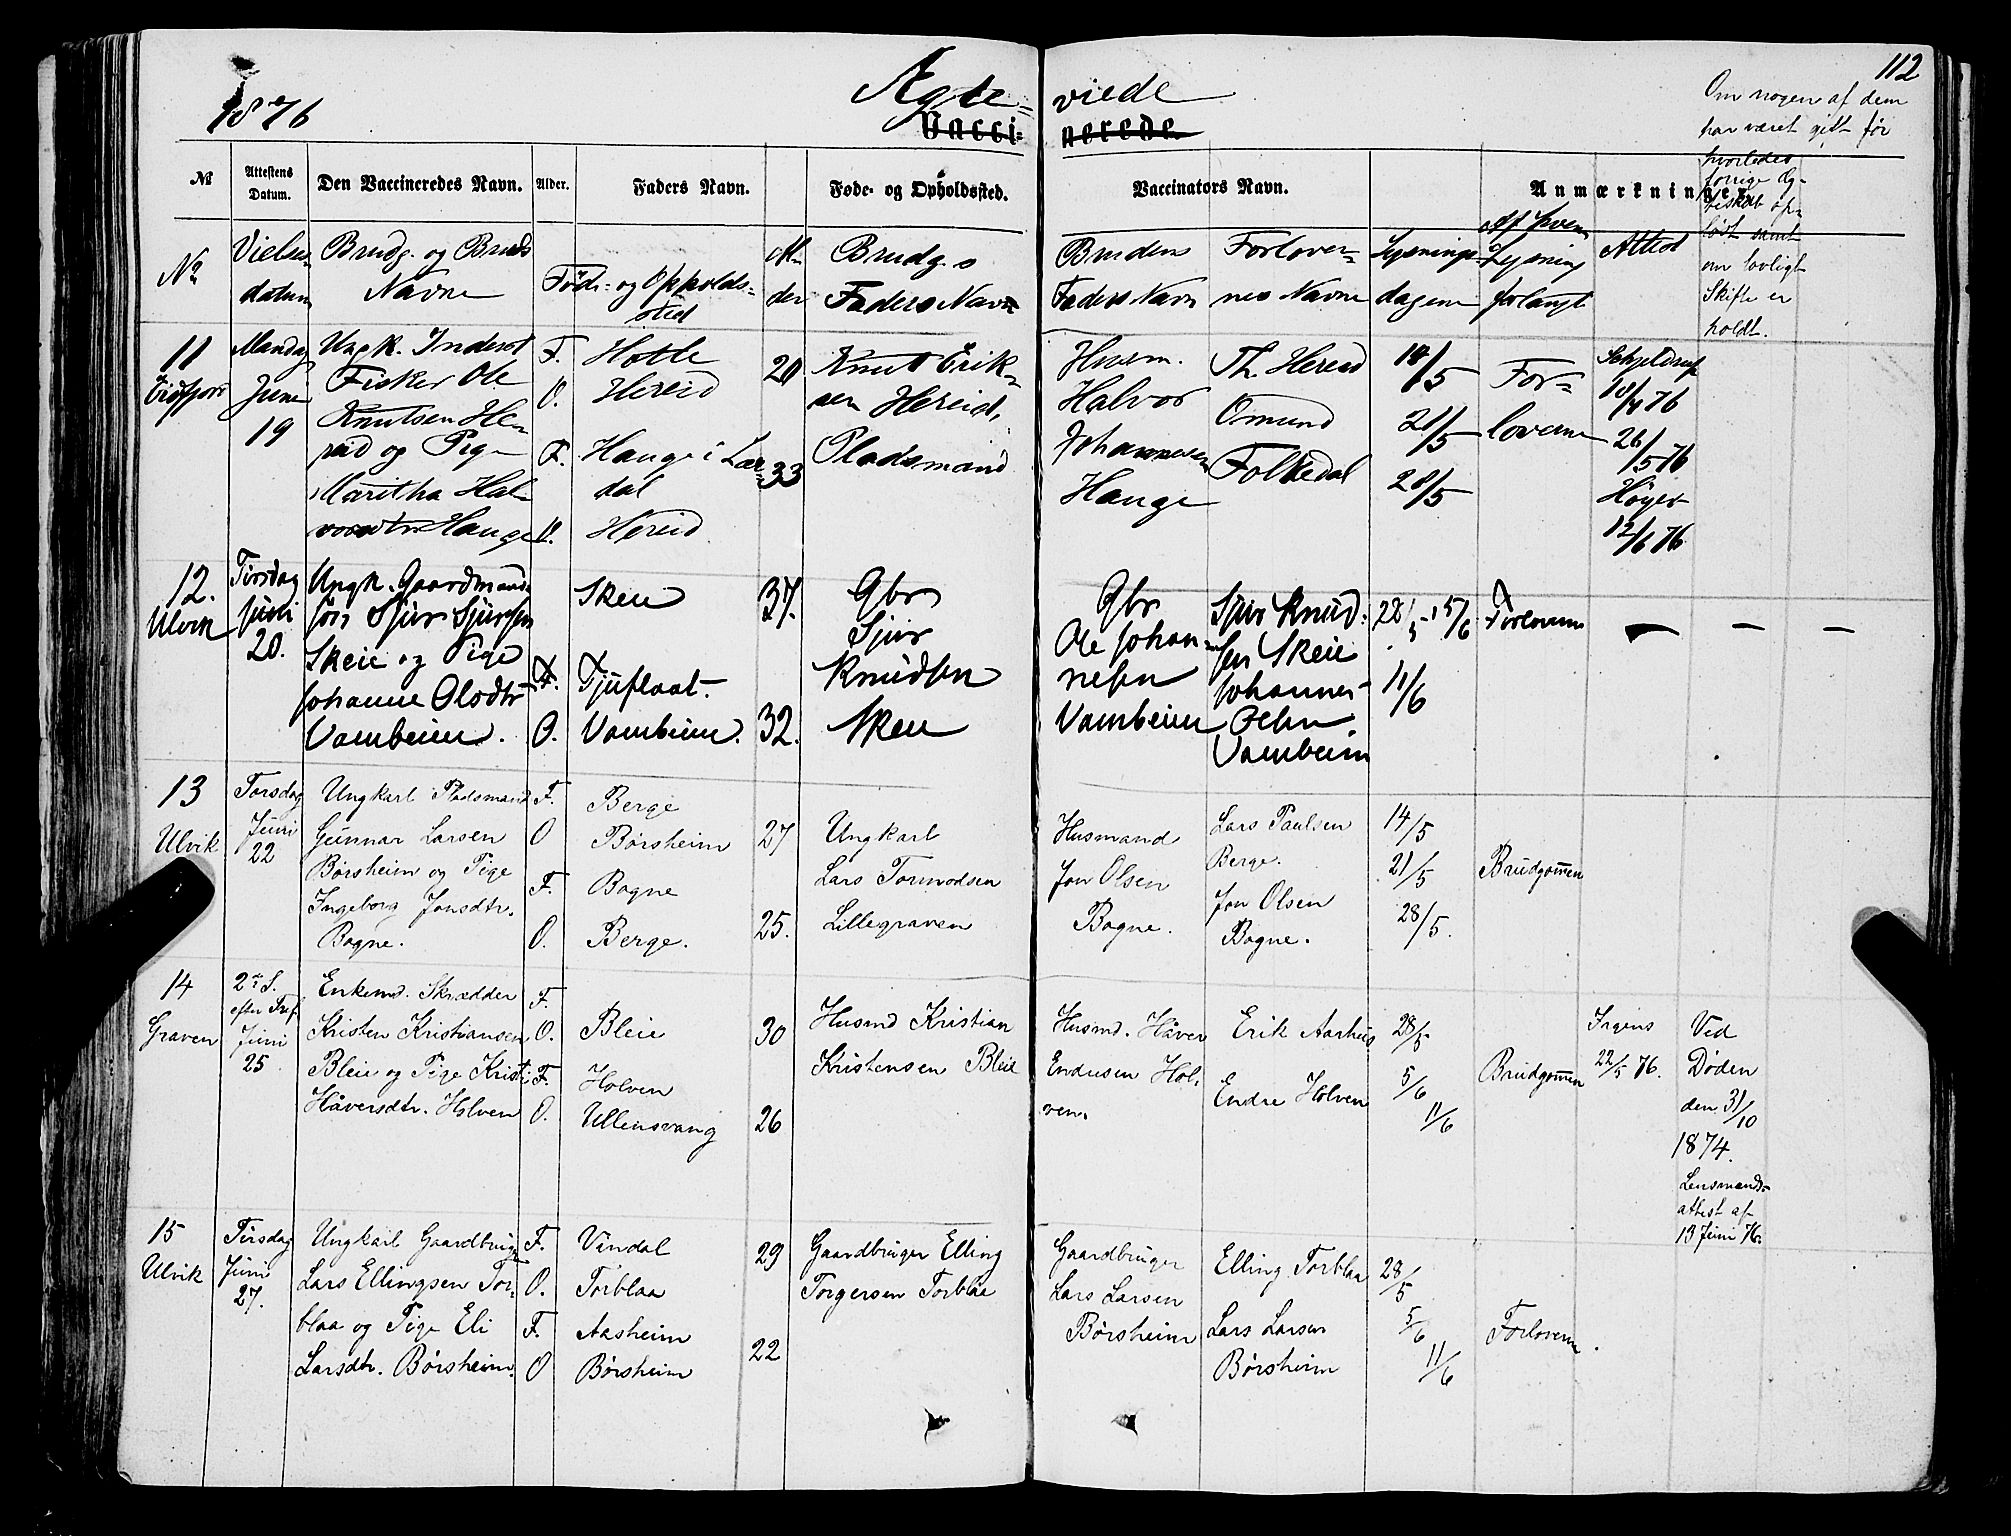 112
1876
Ægte- viede
Vacci- nerede.
Om nogen af dem
har været gift før
hvorledes
forrige Æg-
teskab op-
løst samt
om lovligt
Skifte er
holdt.
№ Attestens Datum. Den Vaccineredes Navn. Alder. Faders Navn. Føde- og Opholdssted. Vaccinators Navn. Anmærkninger.
No Vielses- datum Brudg. og Bruds Navne Føde- og Oppholds- sted Al- der Brudg.s Faders Navn Brudens Faders Navn Forlover- nes Navne Lysnings- dagene Af hvem Lysning forlangt Attest
11
Eidfjord
Mandag
Juni
19
Ungk. Inderst
Fisker Ole
Knutsen He-
reid og Pige
Maritha Hal-
vorsdtr Hauge
F. Hotle
O. Hereid
F. Hauge i Lær-
dal
O. Hereid
20
33
Knut Erik-
sen Hereid,
Pladsmand
Husm.
Halvor
Johannesen
Hauge
Th. Hereid
Omund
Folkedal
18/5
21/5
28/5
For-
loverne
Schjelderup
10/4 76
26/5 76
Høyer
12/6 76
12.
Ulvik
Tirsdag
Juni
20.
Ungk. Gaardmands-
søn Sjur Sjursen
Skeie og Pige
Johanne Olsdtr
Vambeim.
Skeie
F. Tjuflaat.
O. Vambeim.
37.
32.
Gbr
Sjur
Knudsen
Skeie
Gbr
Ole Johan-
nesen
Vambeim
Sjur Knud-
sen Skeie
Johannes
Olsen
Vambeim
28/5 - 5/6
11/6
Forloverne
— — —
13
Ulvik
Torsdag
Juni
22
Ungkarl Pladsmand
Gunnar Larsen
Børsheim og Pige
Ingeborg Jonsdtr.
Bagne.
F. Berge
O Børsheim
F. Bagne
O. Berge.
27
25.
Ungkarl
Lars Tormodsen
Lillegraven
Husmand
Jon Olsen
Bagne.
Lars Paulsen
Berge.
Jon Olsen
Bagne.
14/5
21/5
28/5.
Brudgommen
14
Graven
2den S.
efter Tref.
Juni
25
Enkemd. Skrædder
Kristen Kristiansen
Bleie og Pige Kristi
Håversdtr. Holven
F.
O. Bleie
F. Holven
O. Ullensvang
30
26
Husmd Kristian
Kristensen Bleie
Husmd. Håver
Endresen Hol-
ven.
Erik Aarhus
Endre Holven
28/5
5/6
11/6
Brudgommen
Irgens
22/5 76.
Ved
Døden
den 31/10
1874.
Lensmands-
attest af
13 Juni 76.
15
Ulvik
Tirsdag
Juni
27.
Ungkarl Gaardbruger
Lars Ellingsen Tor-
blaa og Pige Eli
Larsdtr. Børsheim.
F. Vindal
O. Torblaa
F. Aasheim
O Børsheim
29
22
Gaardbruger Elling
Torgersen Torblaa
Gaardbruger
Lars Larsen
Børsheim
Elling Torblaa
Lars Larsen
Børsheim
28/5
5/6
11/6
Forloverne.